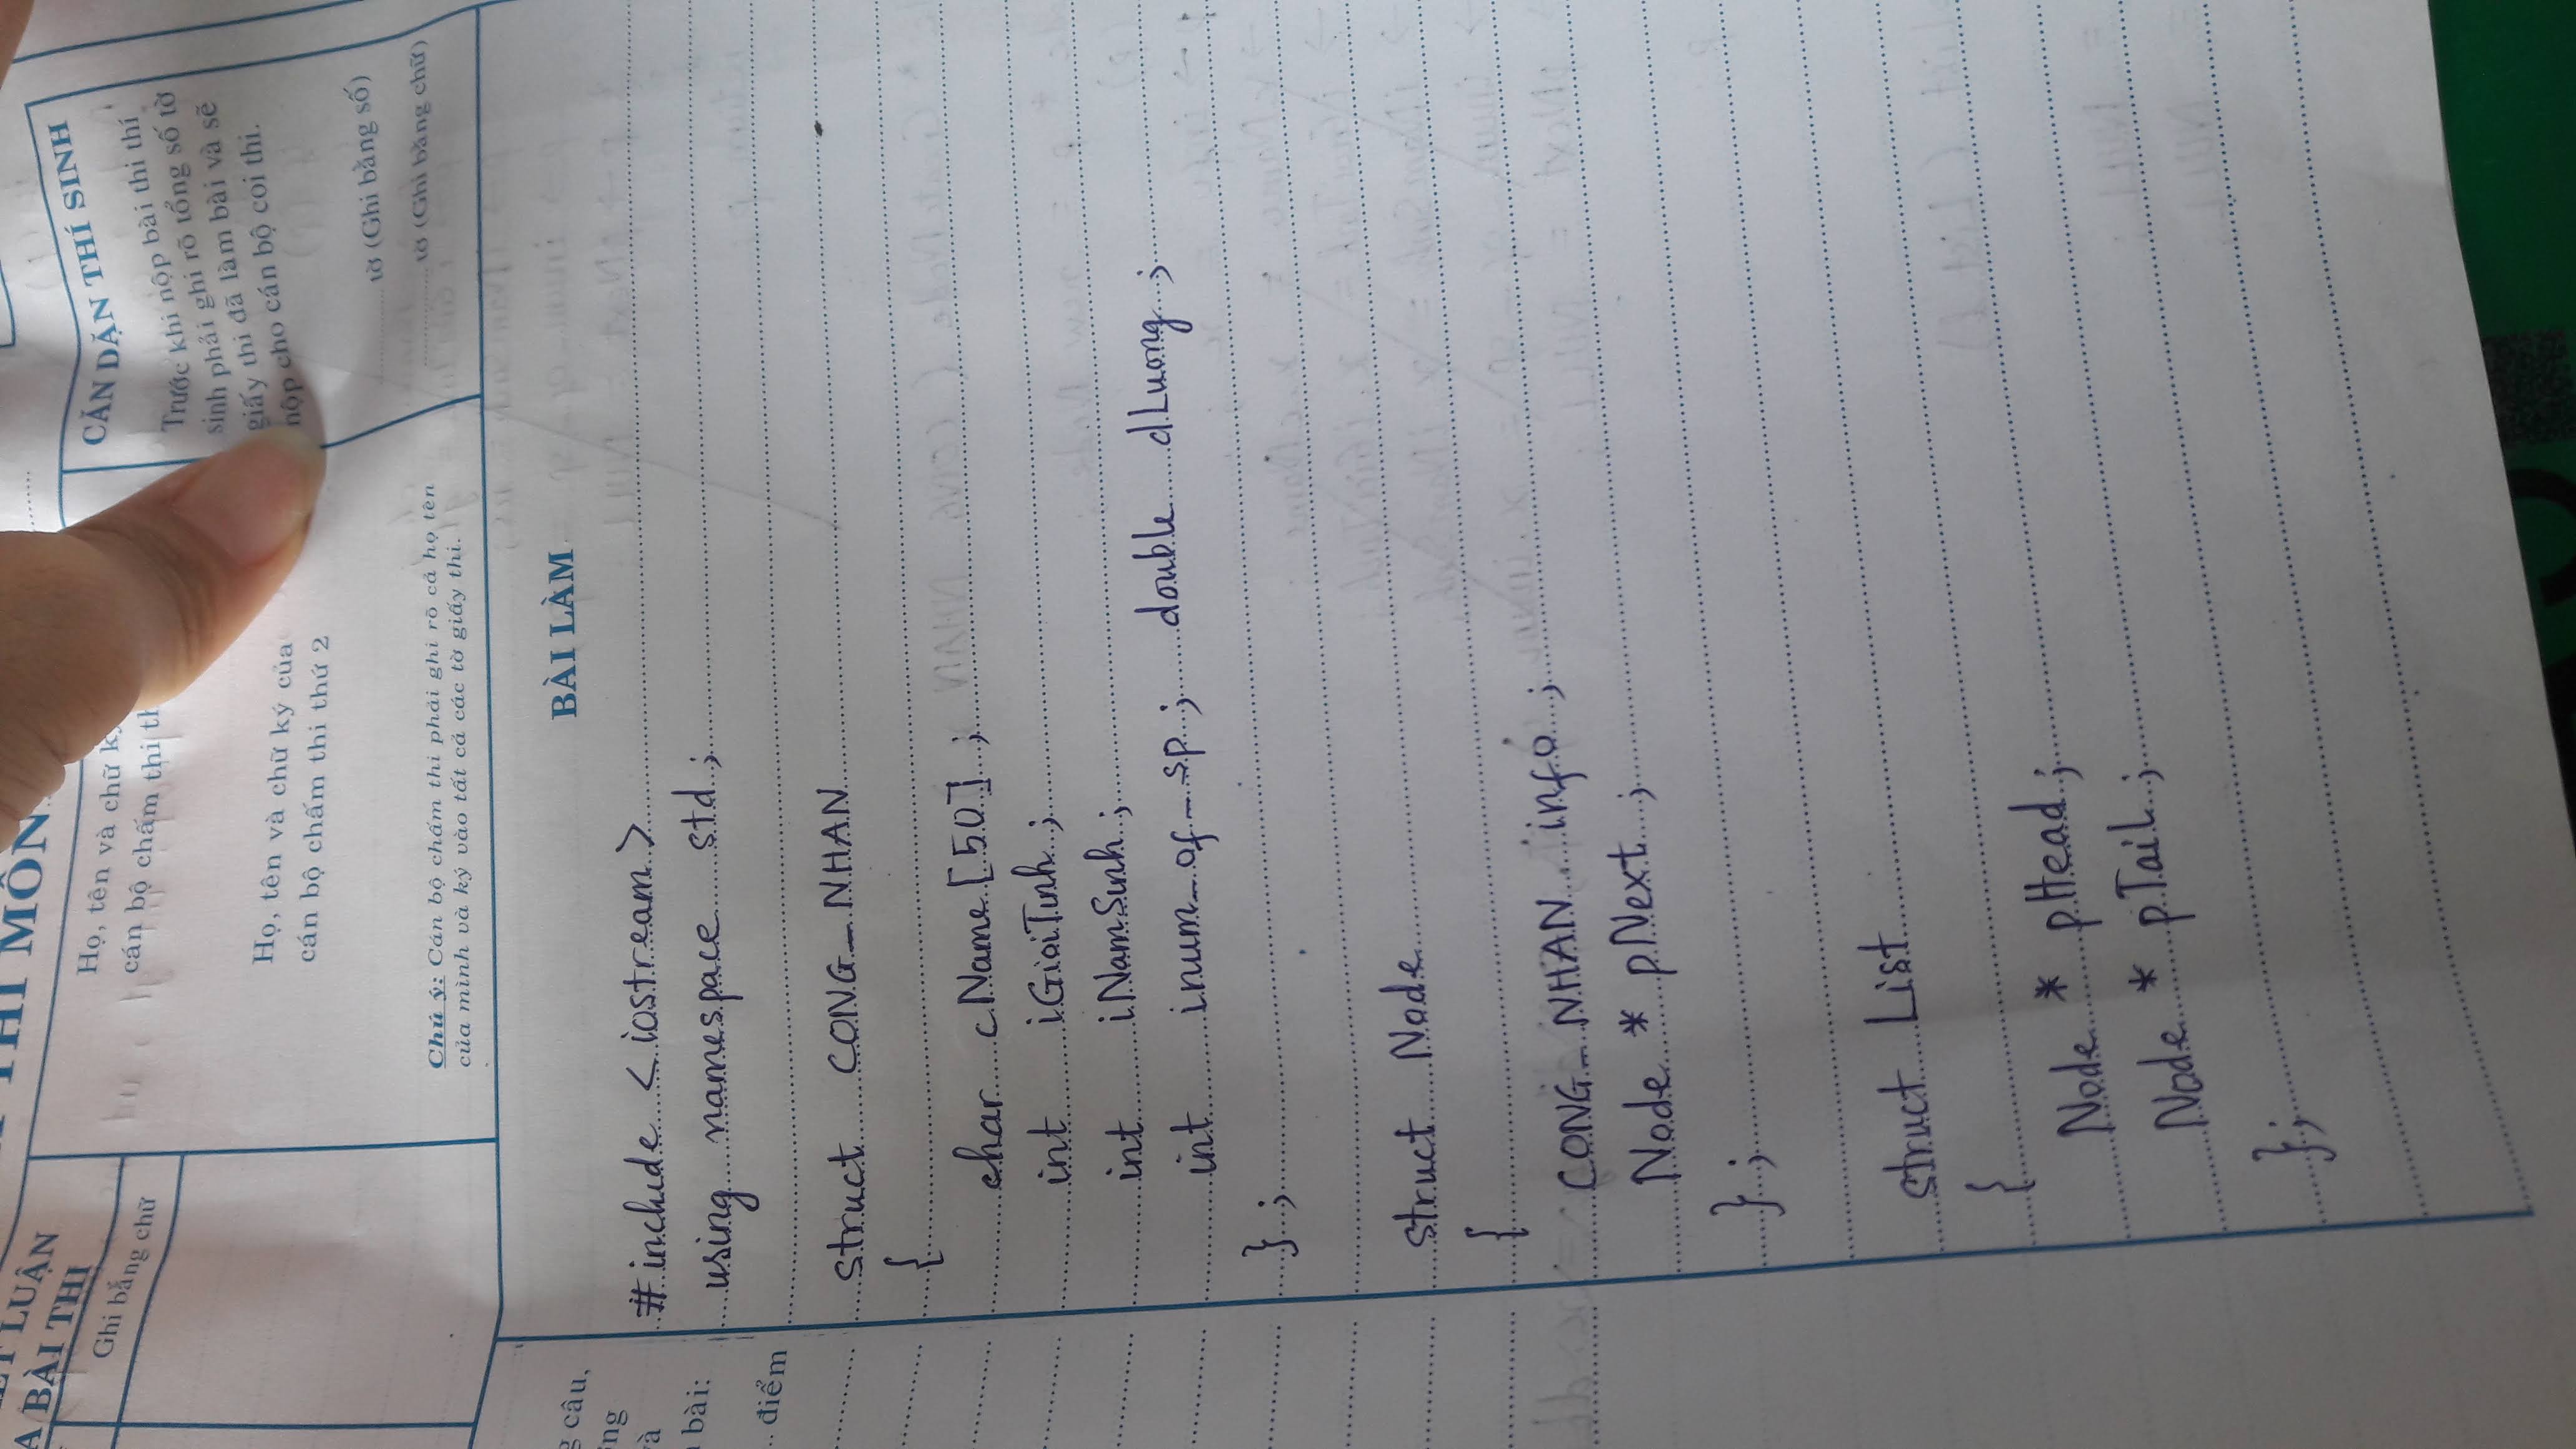 THI MÔN
LUẬN
A BÀI THI
Ghi bằng chữ
Họ, tên và chữ
cán bộ chấm thi
Họ, tên và chữ ký của
cán bộ chấm thi thứ 2
Chú ý: Cán bộ chấm thi phải ghi rõ cả họ tên
của mình và ký vào tất cả các tờ giấy thi.
CĂN DẶN THÍ SINH
Trước khi nộp bài thi thí
sinh phải ghi rõ tổng số tờ
giấy thi đã làm bài và sẽ
nộp cho cán bộ coi thi.
tờ (Ghi bằng số)
tờ (Ghi bằng chữ)
câu,
bài:
điểm
BÀI LÀM
#include <iostream>
using namespace std;
struct CONG_NHAN
{
char cName[50];
int iGioiTinh;
int iNamSinh;
int inum_of_sp; double dLuong;
};
struct Node
{
CONG_NHAN info;
Node * pNext;
};
struct List
{
Node * pHead;
Node * pTail;
};